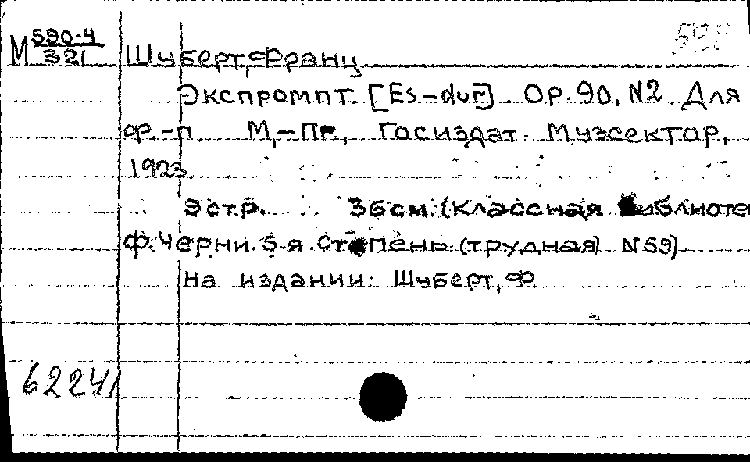 М 590-4
321
Шуберт, Франц
Экспромпт. [Es-dur] Op. 90, N2. Для
ф.-п. М.-Пг., Госиздат. Музсектор,
1923
9стр. 36см. (Классная библиоте
Ф. Черни. 5-я степень (трудная) N59)
На издании: Шуберт, Ф.
62241